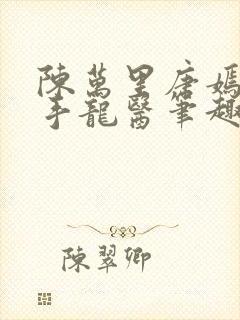 陳萬里唐嫣
手龍醫筆趣
陳翠卿